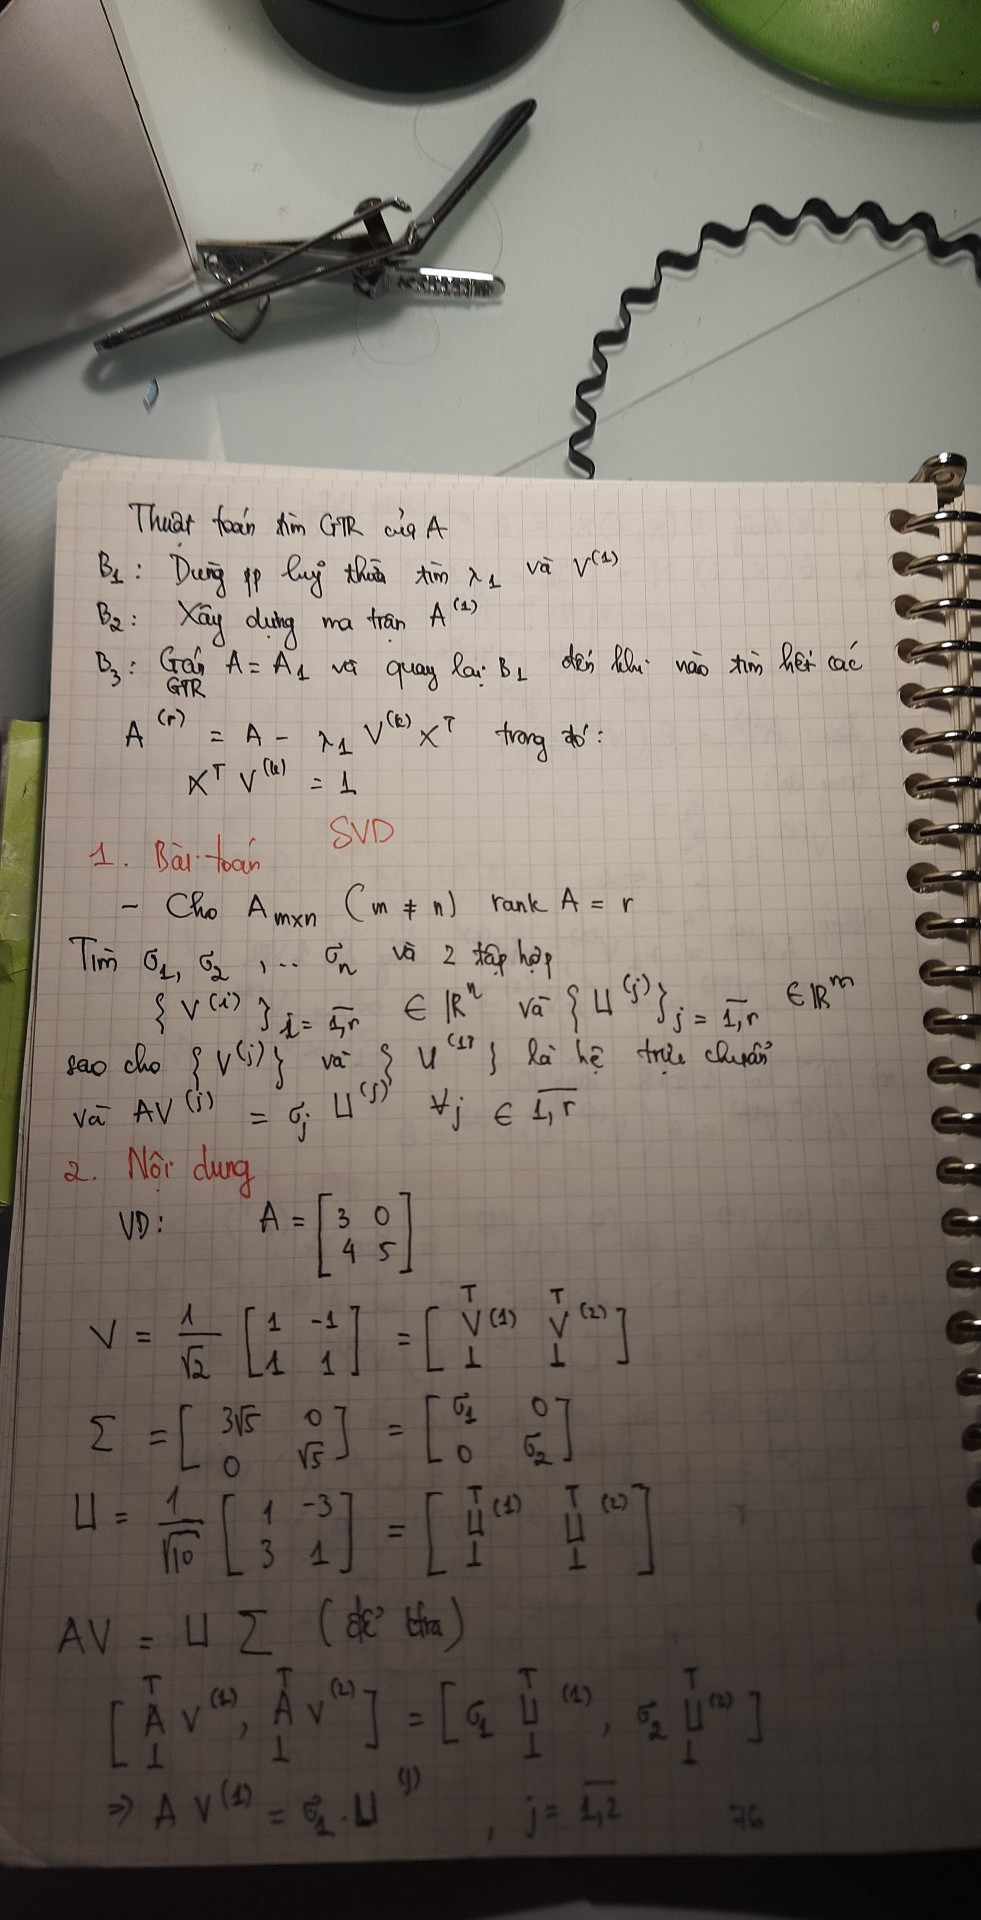 Thuật toán tìm GTR của A
B₁: Dùng pp luỹ thừa tìm λ₁ và V⁽¹⁾
B₂: Xây dựng ma trận A⁽¹⁾
B₃: Gán A = A₁ và quay lại B₁ đến khi nào tìm hết các
GTR
A⁽ʳ⁾ = A - λ₁ V⁽ᵏ⁾ Xᵀ trong đó:
Xᵀ V⁽ᵏ⁾ = 1
SVD
1. Bài toán
- Cho A_{m×n} (m ≠ n) rank A = r
Tìm σ₁, σ₂, ... σₙ và 2 tập hợp
{V⁽ⁱ⁾}_{i = \overline{1,r}} ∈ ℝⁿ và {U⁽ʲ⁾}_{j = \overline{1,r}} ∈ ℝᵐ
sao cho {V⁽ʲ⁾} và {U⁽¹⁾} là hệ trực chuẩn
và AV⁽ʲ⁾ = σⱼ U⁽ʲ⁾ ∀j ∈ \overline{1,r}
2. Nội dung
VD: A = [3 0
4 5]
V = 1/√2 [1 -1
1 1] = [V⁽¹⁾ V⁽²⁾]
Σ = [3√5 0
0 √5] = [σ₁ 0
0 σ₂]
U = 1/√10 [1 -3
3 1] = [U⁽¹⁾ U⁽²⁾]
AV = U Σ (để ktra)
[A V⁽¹⁾, A V⁽²⁾] = [σ₁ U⁽¹⁾, σ₂ U⁽²⁾]
⇒ A V⁽¹⁾ = σ₁ . U⁽ʲ⁾, j = \overline{1,2}
76